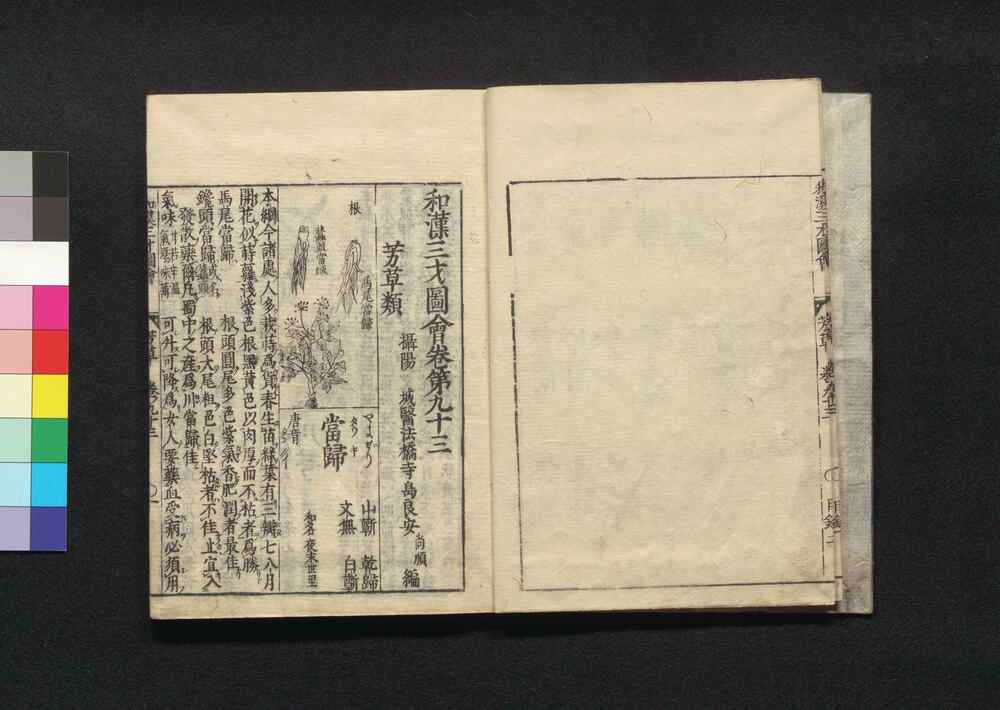 和漢三才圖會
芳草 卷九十三 〇 目録 二
和漢三才圖會卷第九十三
攝陽 城醫法橋寺島良安尚順 編
芳草類
根
馬尾當歸
蠶頭當歸
當歸
唐音
山蘄 乾歸
文無 白蘄
和名 夜末世里
本綱今諸處人多栽蒔爲貨春生苗綠葉有三瓣七八月
開花似蒔蘿淺紫色根黑黃色以肉厚而不枯者爲勝
馬尾當歸 根頭圓尾多色紫氣香肥潤者最佳
蠶頭當歸 根頭大尾粗色白堅枯者不佳止宜入
發散藥爾凡蜀中之産爲川當歸佳
氣味 甘苦辛溫 氣厚味薄 可升可降爲女人要藥血受病必須用
和漢三才圖會 芳草 卷九十三 〇一